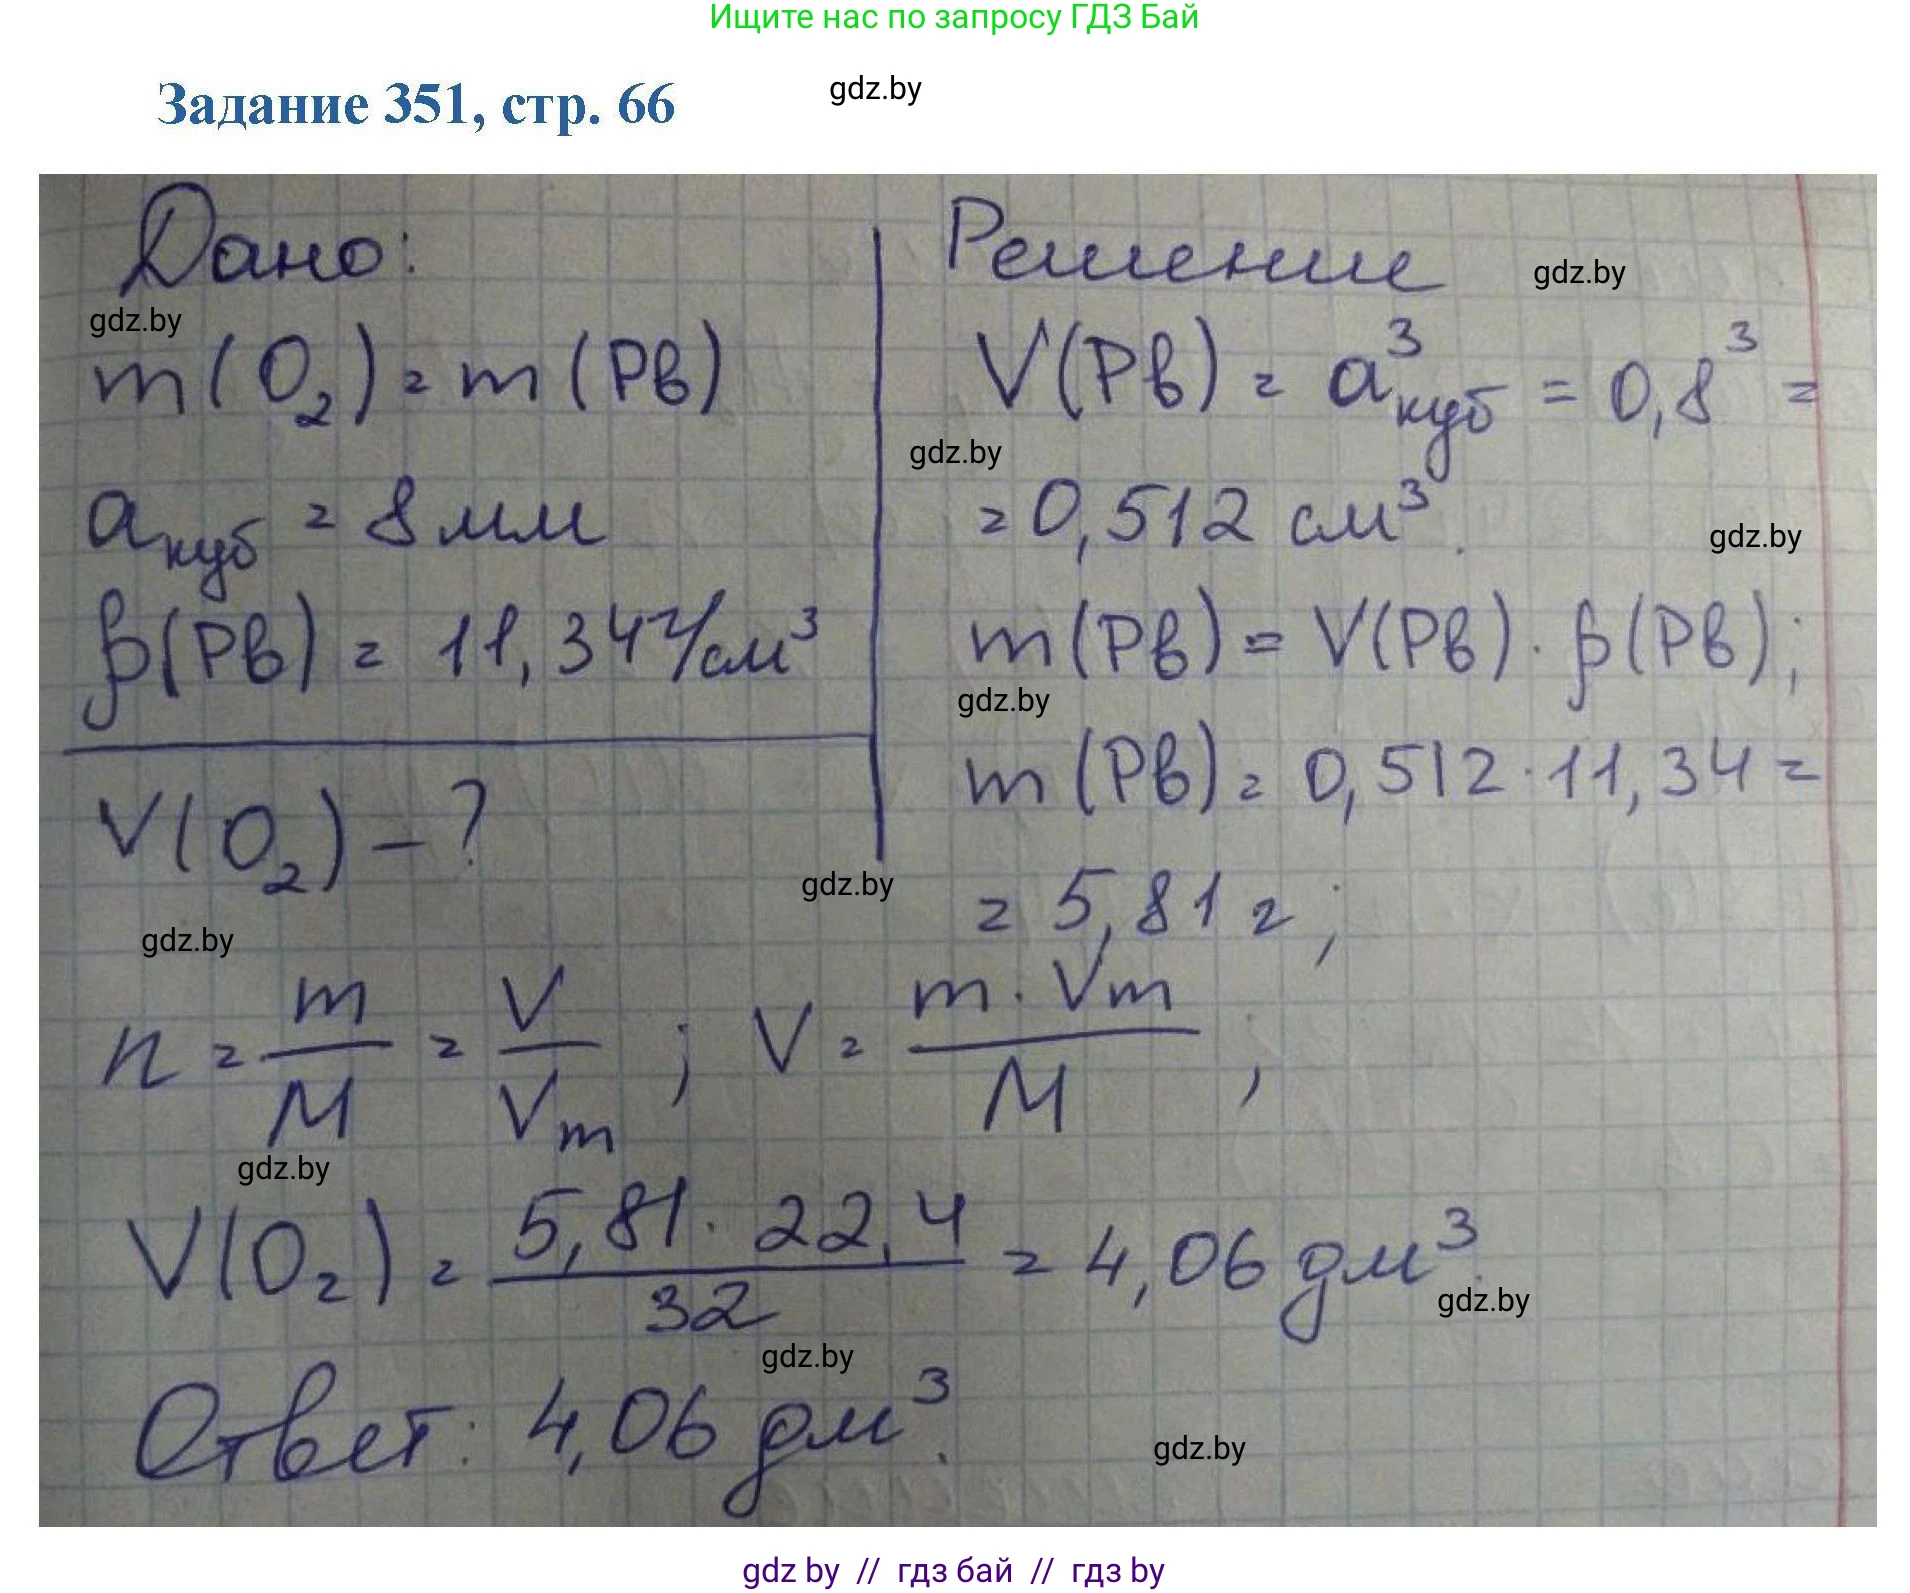 Ищите нас по запросу ГДЗ Бай
Задание 351, стр. 66
gdz.by
Дано:
gdz.by
m(O₂) = m(Pb)
a куб = 8 мм
ρ(Pb) = 11,34 г/см³
V(O₂) - ?
Решение
gdz.by
V(Pb) = a³куб = 0,8³ =
gdz.by
= 0,512 см³.
gdz.by
m(Pb) = V(Pb) · ρ(Pb);
gdz.by
m(Pb) = 0,512 · 11,34 =
gdz.by
= 5,81 г;
gdz.by
n = m/M = V/Vm ; V = m · Vm / M ,
gdz.by
V(O₂) = 5,81 · 22,4 / 32 = 4,06 дм³.
gdz.by
gdz.by
Ответ: 4,06 дм³.
gdz.by
gdz by // гдз бай // гдз by